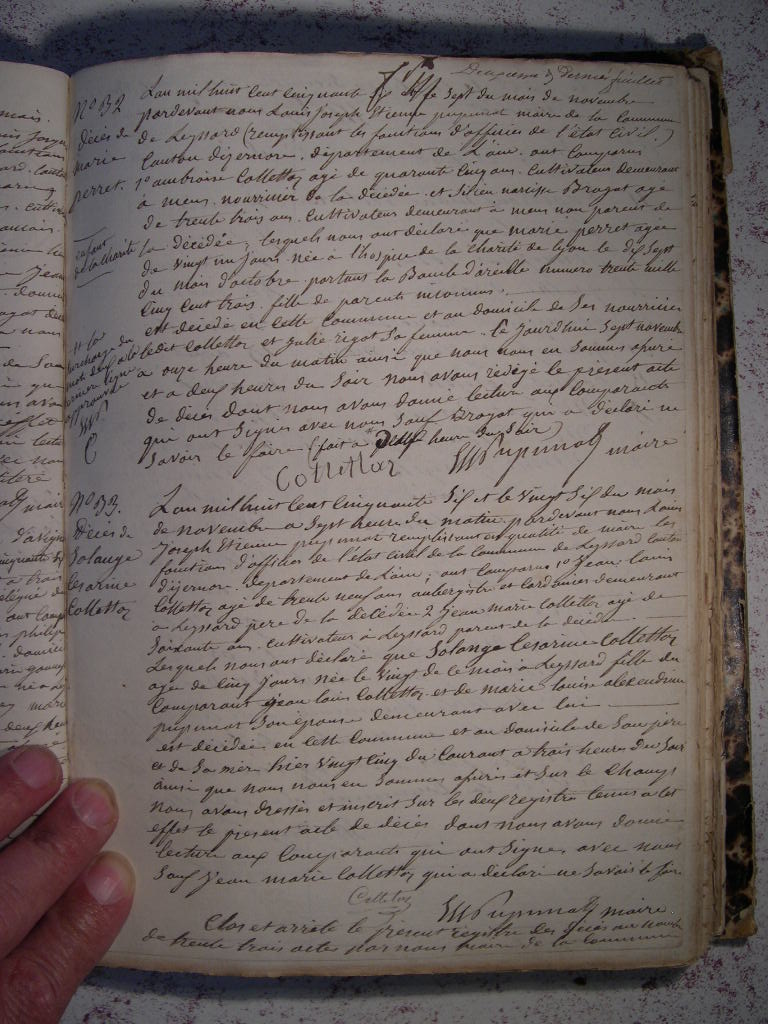 Deuxieme & dernié feuillet
No 32
décès de
marie
perret.
enfant
de la charité
Lan mil huit cent cinquante six et le sept du mois de novembre
pardevant nous Louis Joseph Etienne pupunat maire de la commune
de Leyssard (remplissant les fonctions d'officier de l'état civil.)
Canton d'izernore. département de L'ain. ont comparus
1o ambroise Collettaz agé de quarante cinq ans. cultivateur demeurant
à mens. nourricier de la décédée. et Sirien narcisse Brogat agé
de trente trois ans. cultivateur demeurant à mens non parent de
la décédée; lesquels nous ont déclaré que marie perret agée
de vingt un jours née à l'hospice de la charité de lyon le dix sept
du mois d'octobre. portant la Boucle d'oreille numero trente mille
cinq cent trois. fille de parents inconnus.
est décédée en cette commune et au domicile de Ses nourriciers
ledit Collettaz et julie rigot sa femme. le jourdhui sept novembre
a onze heure du matin ainsi que nous nous en sommes assuré
et a deux heures du soir nous avons rédigé le present acte
de décès dont nous avons donné lecture aux comparants
qui ont signés avec nous sauf Brogat qui a déclaré ne
savoir le faire (fait a deux heure du soir)
surcharge du
mot deux à la
dernier ligne
approuvé
Collettaz
Pupunat maire
No 33.
Décès de
Solange
Cesarine
Collettaz
Lan mil huit cent cinquante six et le vingt six du mois
de novembre a sept heure du matin. pardevant nous Louis
Joseph Etienne pupunat remplissant en qualité de maire les
fonctions d'officier de l'état civil de la commune de Leyssard canton
d'izernore. departement de L'ain; ont comparus 1o Jean Louis
Collettaz agé de trente neuf ans aubergiste et cordonier demeurant
à Leyssard pere de la décédée 2o Jean marie Collettaz agé de
soixante ans. cultivateur à Leyssard parent de la décédée
Lesquels nous ont déclaré que Solange Cesarine Collettaz
agée de cinq jours née le vingt de le mois a Leyssard fille du
comparant jean louis Collettaz et de marie louise alexandrine
pupunat son épouse demeurant avec lui
est décédée en cette commune et au domicile de Son père
et de Sa mère hier vingt cinq du courant a trois heures du soir
ainsi que nous nous en sommes assurés et sur le champs
nous avons dressés et inscrit sur les deux registre tenus a cet
effet le present acte de décès dont nous avons donné
lecture aux comparants qui ont signés avec nous
sauf jean marie Collettaz qui a déclaré ne savoir le faire
Collettaz
Pupunat maire
Clos et arreté le present registre des décès au nombre
de trente trois actes par nous maire de la commune